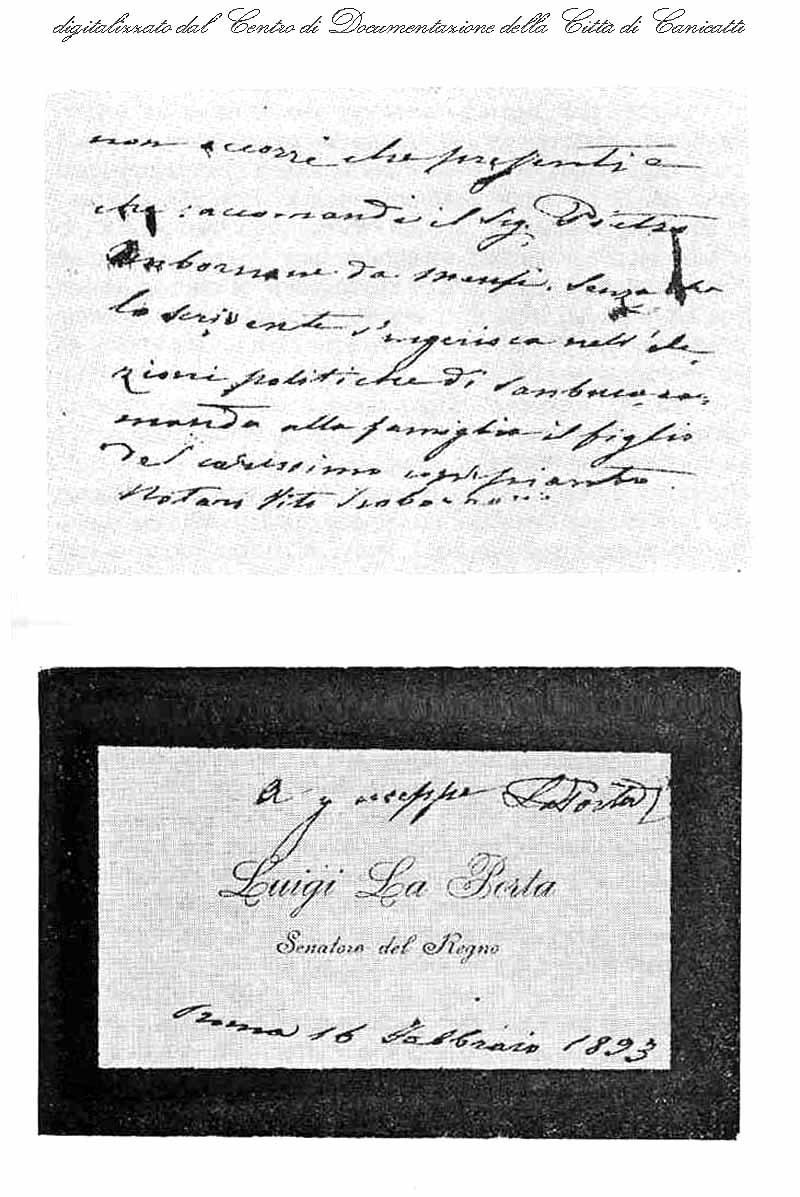 digitalizzato dal Centro di Documentazione della Città di Canicattì
non occorre che presenti e
che raccomandi il Sig. Pietro
da Menfi. Senza che
lo scrivente s'ingerisca nell'ele-
zioni politiche di Sambuca
manda alla famiglia il figlio
del carissimo compianto
Notaro Vito
A Giuseppe La Porta
Luigi La Porta
Senatore del Regno
Roma 16 Febbraio 1893